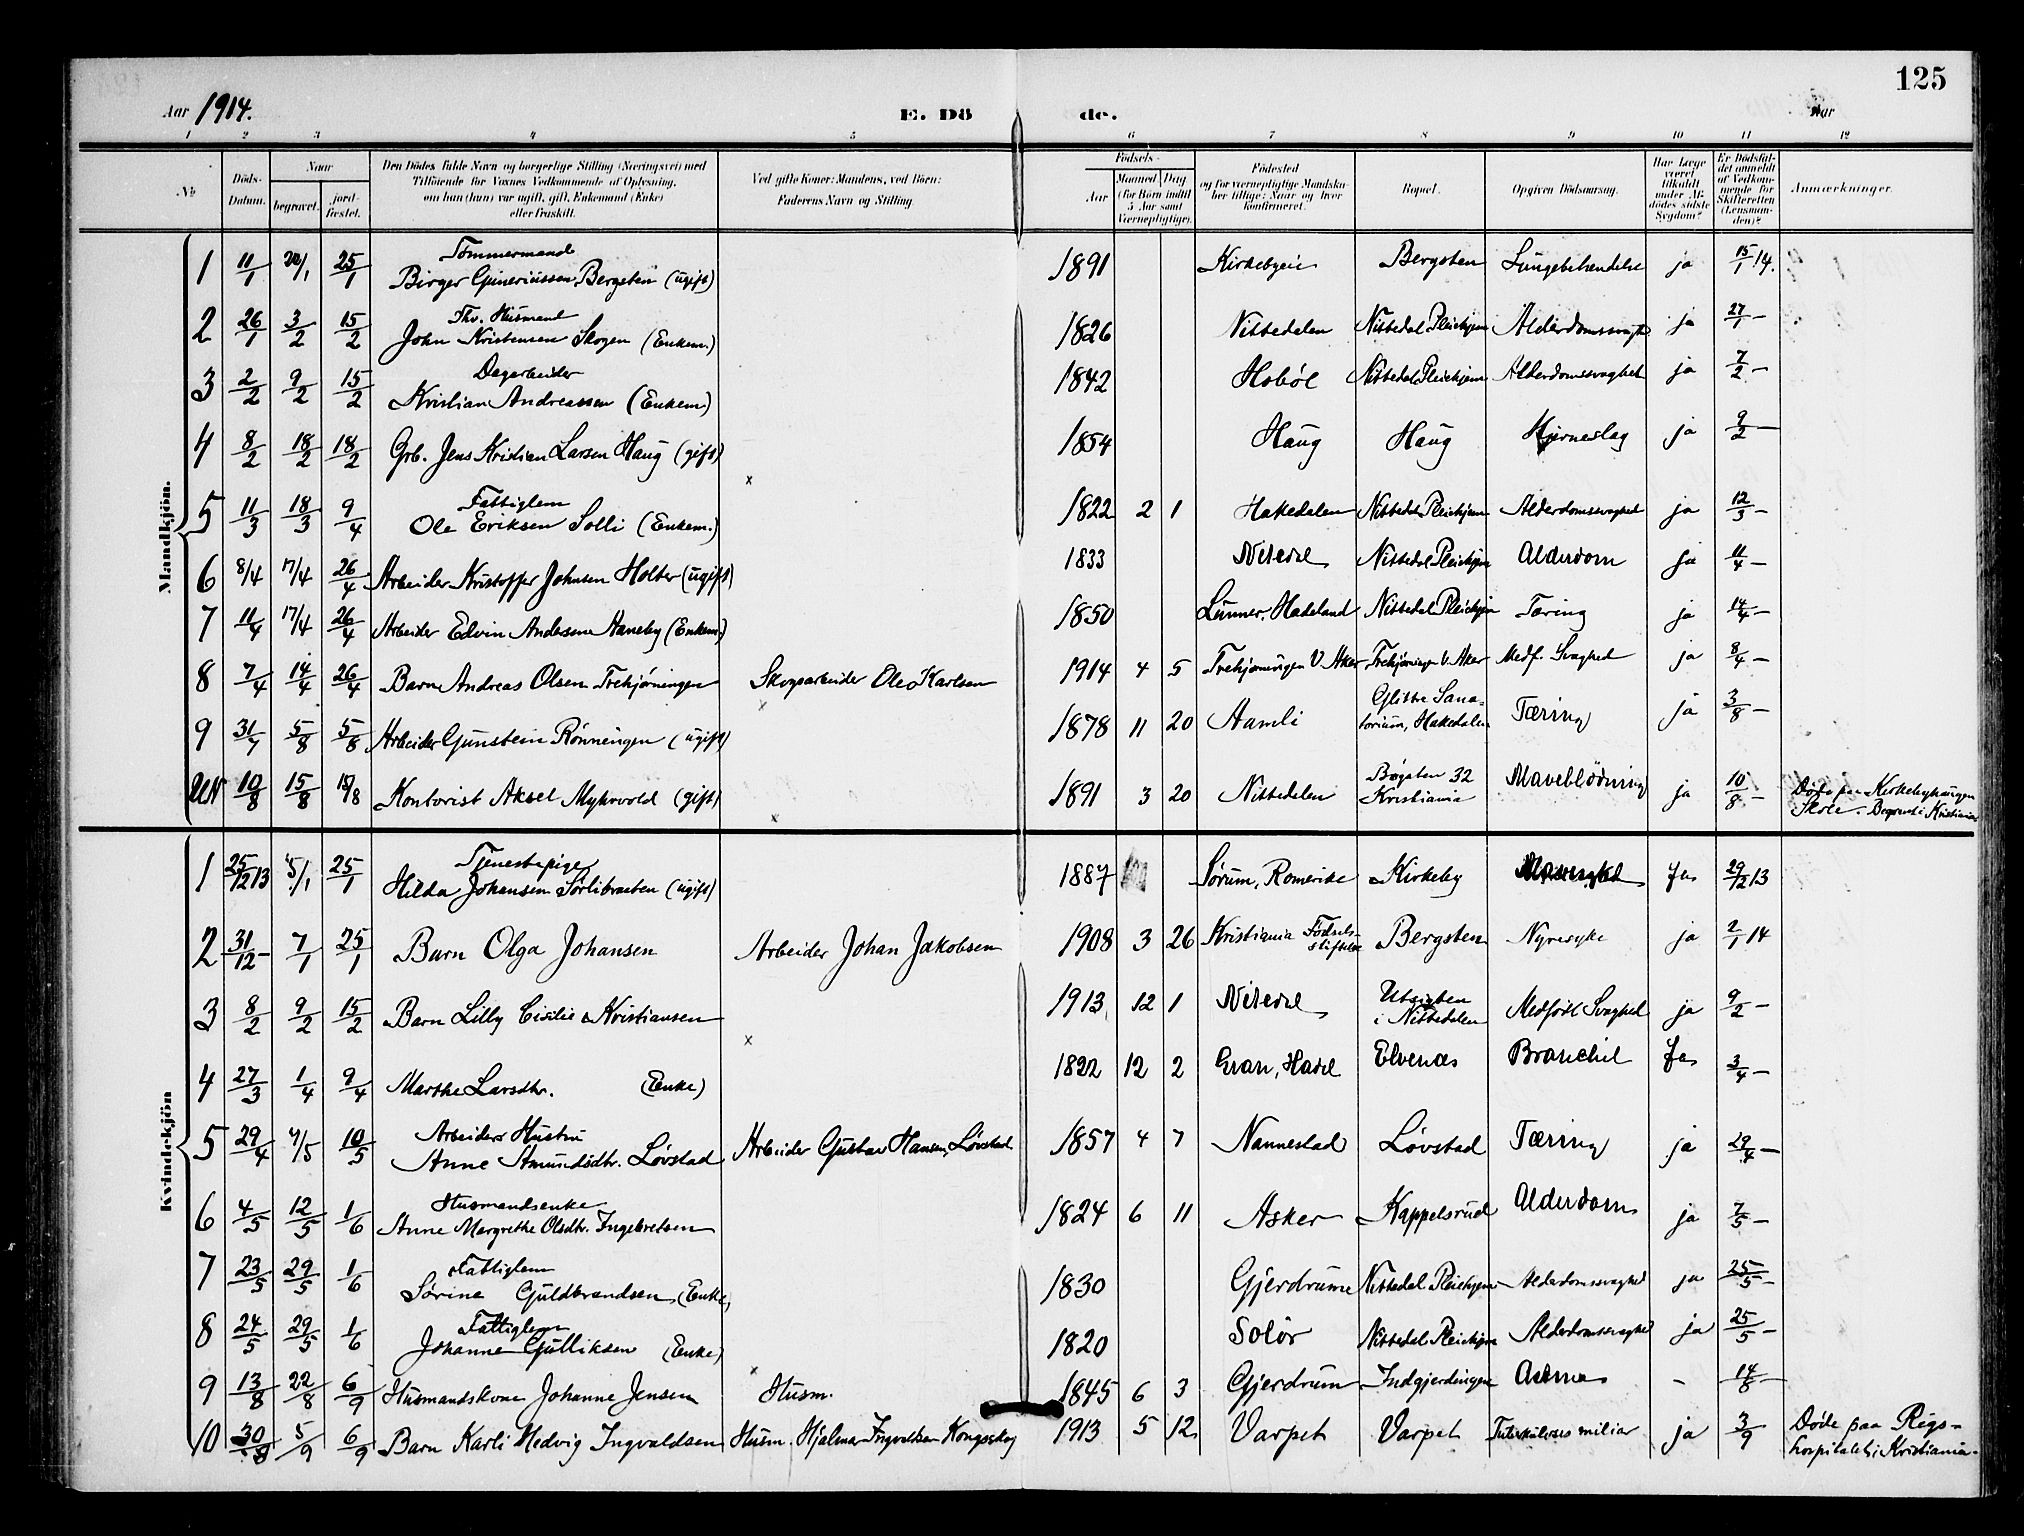 125
Aar 1914. E. Dö de. Aar
1 2 3 4 5 6 7 8 9 10 11 12
№ Döds-Datum. Naar begravet. jord-fæstet. Den Dödes fulde Navn og borgerlige Stilling (Næringsvei) med Tilföiende for Voxnes Vedkommende af Oplysning, om han (hun) var ugift, gift, Enkemand (Enke) eller fraskilt. Ved gifte Koner: Mandens, ved Börn: Faderens Navn og Stilling. Födsels- Aar Maaned Dag (for Börn indtil 5 Aar samt Værnepligtige). Födested og for værnepligtige Mandska-ber tillige: Naar og hvor konfirmeret. Bopæl. Opgiven Dödsaarsag. Har Læge været tilkaldt under Af-dödes sidste Sygdom? Er Dödsfal-det anmeldt af Vedkom-mende for Skifteretten (Lensman-den)? Anmærkninger.
Mandkjön.
1 11/1 25/1 Tømmermand
Birger Bergsten (ugift) 1891 Kirkebyeie Bergsten Lungebetændelse ja 15/1 14.
2 26/1 3/2 15/2 Fhv. Husmand
John Kristensen Skogen (Enkem.) 1826 Nittedalen Nittedal Pleiehjem Alderdomssvaghet ja 27/1 –
3 2/2 9/2 15/2 Dagarbeider
Kristian Andreassen (Enkem) 1842 Hobøl Nittedal Pleiehjem Alderdomssvaghet ja 7/2 –
4 8/2 18/2 18/2 Grb. Jens Kristian Larsen Haug (gift) 1854 Haug Haug Hjerneslag ja 9/2 –
5 11/3 18/3 9/4 Fattiglem
Ole Eriksen Solli (Enkem.) x 1822 2 1 Hakedalen Nittedal Pleiehjem Alderdomssvaghed ja 12/3 –
6 8/4 17/4 26/4 Arbeider Kristoffer Johnsen Holter (ugift) 1833 Nitedal Nittedal Pleiehjem Alderdom ja 11/4 –
7 11/4 17/4 26/4 Arbeider Edvin Andersen Haneby (Enkem.) 1850 Lunner, Hadeland Nittedal Pleiehjem Tæring ja 14/4 –
8 7/4 14/4 26/4 Barn Andreas Olsen Trehjørningen Skogsarbeider Ole Karlsen 1914 4 5 Trehjørningen V. Aker Trehjørningen V. Aker Medf. Svaghed ja 8/4 –
9 31/7 5/8 5/8 Arbeider Gunstein Rønningen (ugift) x 1878 11 20 Aamli Glittre Sana-
torium, Hakedalen Tæring ja 3/8 –
UN 10/8 15/8 15/8 Kontorist Aksel Myhrvold (gift) x 1891 3 20 Nittedalen 32
Kristiania Maveblödning ja 10/8 – Døde paa Kirkebyhaugen
Skole. Begravet i Kristiania
Kvindekjön
1 25/12 13 5/1 25/1 Tjenestepige
Hilda Johansen Sørlibraaten (ugift) 1887 Sørum, Romerike Kirkeby Ja 29/12 13
2 31/12 – 7/1 25/1 Barn Olga Johansen Arbeider Johan Jakobsen 1908 3 26 Kristiania Fødsels-
stiftelse Bergsten Nyresyke ja 2/1 14
3 8/2 9/2 15/2 Barn Lilly Cisilie Kristiansen 1913 12 1 Nitedal Utsigten
i Nittedalen Medfødt Svaghed ja 9/2 –
4 27/3 1/4 9/4 Marthe Larsdtr. (Enke) x 1822 12 2 Gran, Hadel Elvenæs Bronchit Ja 3/4 –
5 29/4 4/5 10/5 Arbeiders Hustru
Anne Amundsdtr. Løvstad Arbeider Gustav Hansen Løvstad 1857 4 7 Nannestad Løvstad Tæring ja 29/4 –
6 4/5 12/5 1/6 Husmandsenke
Anne Margrethe Olsdtr. Ingebretsen 1824 6 11 Asker Kappelsrud Alderdom ja 7/5 –
7 23/5 29/5 1/6 Fattiglem
Sørine Guldbrandsen (Enke) 1830 Gjerdrum Nittedal Pleiehjem Alderdomssvaghed ja 25/5 –
8 24/5 29/5 1/6 Fattiglem
Johanne Gulliksen (Enke) 1820 Solör Nittedal Pleiehjem Alderdomssvaghed ja 25/5 –
9 13/8 22/8 6/9 Husmandskone Johanne Jensen x Husm. 1845 6 3 Gjerdrum Indgjerdingen Astma – 14/8 –
10 30/8 5/9 6/9 Barn Karli Hedvig Ingvaldsen Husm. Hjalmar Ingvaldsen Kongsskog 1913 5 12 Varpet Varpet Tuberkulosis miliar ja 3/9 Døde paa Rigs-
hospitalet i Kristiania.